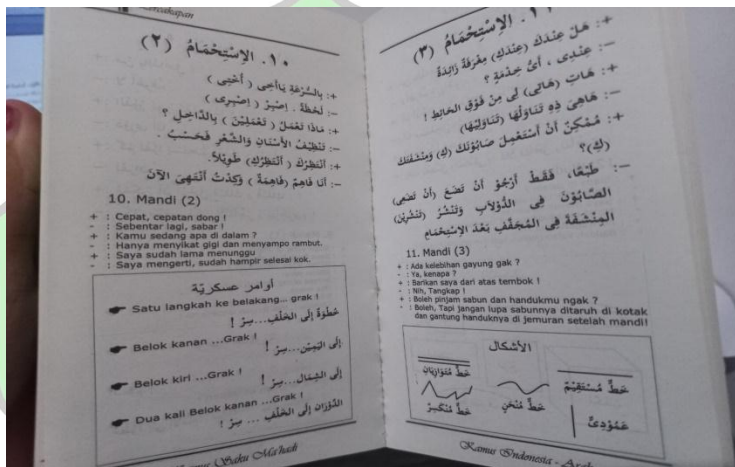 ercakapan
١٠. الإِسْتِحْمَامُ (٢)
+: بِالسُّرْعَةِ يَاأَخِى ( أُخْتِى )
-: لَحْظَةً . اِصْبِرْ ( اِصْبِرِى )
+: مَاذَا تَعْمَلُ ( تَعْمَلِيْنَ ) بِالدَّاخِلِ ؟
-: تَنْظِيْفُ الأَسْنَانِ وَالشَّعْرِ فَحَسْبُ .
+: أَنْتَظِرُكَ ( أَنْتَظِرُكِ ) طَوِيْلاً.
-: أَنَا فَاهِمٌ (فَاهِمَةٌ ) وَكِدْتُ أَنْتَهِىَ الآنَ
10. Mandi (2)
+ : Cepat, cepatan dong !
- : Sebentar lagi, sabar !
+ : Kamu sedang apa di dalam ?
- : Hanya menyikat gigi dan menyampo rambut.
+ : Saya sudah lama menunggu
- : Saya mengerti, sudah hampir selesai kok.
أوامر عسكريّة
Satu langkah ke belakang... grak !
خُطْوَةٌ إِلَى الخَلْفِ...سِرْ !
Belok kanan ...Grak !
إِلَى اليَمِيْنِ...سِرْ !
Belok kiri ...Grak !
إِلَى الشِّمَالِ...سِرْ !
Dua kali Belok kanan ...Grak !
الدَّوْرَانِ إِلَى الخَلْفِ ... سِرْ !
Saku Ma'hadi
١١. الإِسْتِحْمَامُ (٣)
+: هَلْ عِنْدَكَ (عِنْدَكِ) مِغْرَفَةٌ زَائِدَةٌ
-: عِنْدِى ، أَىُّ خِدْمَةٍ ؟
+: هَاتِ (هَاتِى) لِى مِنْ فَوْقِ الحَائِطِ !
-: هَاهِىَ ذِهِ تَنَاوَلْهَا (تَنَاوَلِيْهَا)
+: مُمْكِنٌ أَنْ أَسْتَعْمِلَ صَابُوْنَكَ (كِ) وَمِنْشَفَتَكَ
(كِ)؟
-: طَبْعًا، فَقَطْ أَرْجُوْ أَنْ تَضَعَ (أَنْ تَضَعِى)
الصَّابُوْنَ فِى الدُّوْلاَبِ وَتَنْشُرُ (تَنْشُرِيْنَ)
المِنْشَفَةَ فِى المُجَفِّفِ بَعْدَ الإِسْتِحْمَامِ
11. Mandi (3)
+ : Ada kelebihan gayung gak ?
- : Ya, kenapa ?
+ : Barikan saya dari atas tembok !
- : Nih, Tangkap !
+ : Boleh pinjam sabun dan handukmu ngak ?
- : Boleh, Tapi jangan lupa sabunnya ditaruh di kotak
dan gantung handuknya di jemuran setelah mandi!
الأَشْكَال
خَطٌّ مُسْتَقِيْمٌ
خَطٌّ مُتَوَازِيَانِ
عَمُوْدِىٌّ
خَطٌّ مُنْحَنٍ
خَطٌّ مُنْكَسِرٌ
Kamus Indonesia - Arab